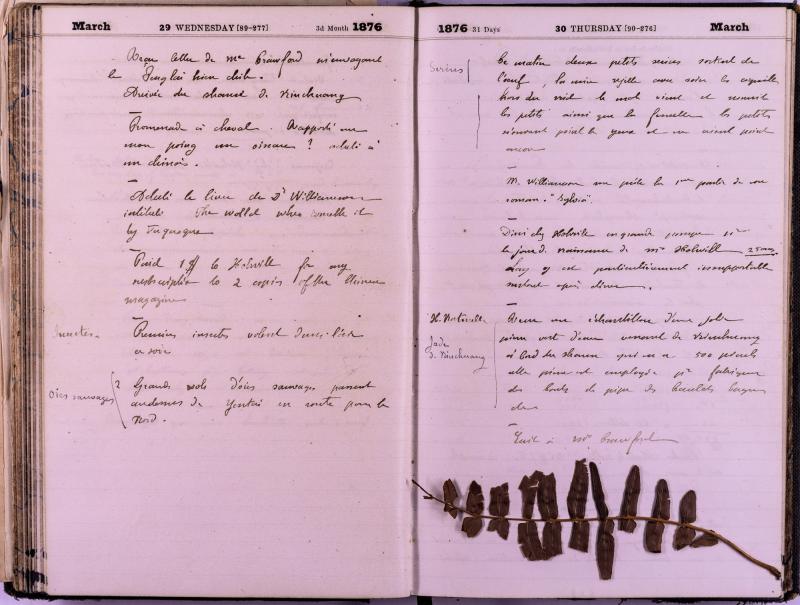 March 29 WEDNESDAY [89-277] 3d Month 1876
Reçu lettre de Mr Crawford m'envoyant
le
Arrivée du de Ninchuang
Promenade à cheval. Rapporté sur
mon poing un oiseau ? acheté à
un chinois.
Acheté le livre de Dr Williamson
intitulé The world when
by
Paid 1 $ to Holwill for my
subscription to 2 copies of the Chinese
magazine
Insectes. Premiers insectes volent dans l'air
ce soir
Oies sauvages 2 Grands vols d'oies sauvages passent
au dessus de Yentai en route pour le
Nord.
1876 31 Days 30 THURSDAY [90-276] March
Serins Ce matin deux petits serins sortent de
l'œuf, la mère rejette avec soin les coquilles
hors du nid. le male vient et nourrit
les petits ainsi que la femelle. les petits
n'ouvrent point les yeux et ne crient point
encore
M. Williamson me prête la 1ère partie de son
roman.
Diner chez Holwill en grande pompe pr
le jour de naissance de Mme Holwill 25 ans
est particulièrement insupportable
surtout après diner.
Jade Reçu un échantillon d'une jolie
de Ninchuang pierre vert d'eau venant de Ninchuang
à bord du qui en a 500 piculs
cette pierre est employée pr fabriquer
des bouts de pipe des bracelets bagues
etc
Ecrit à Mr Crawford